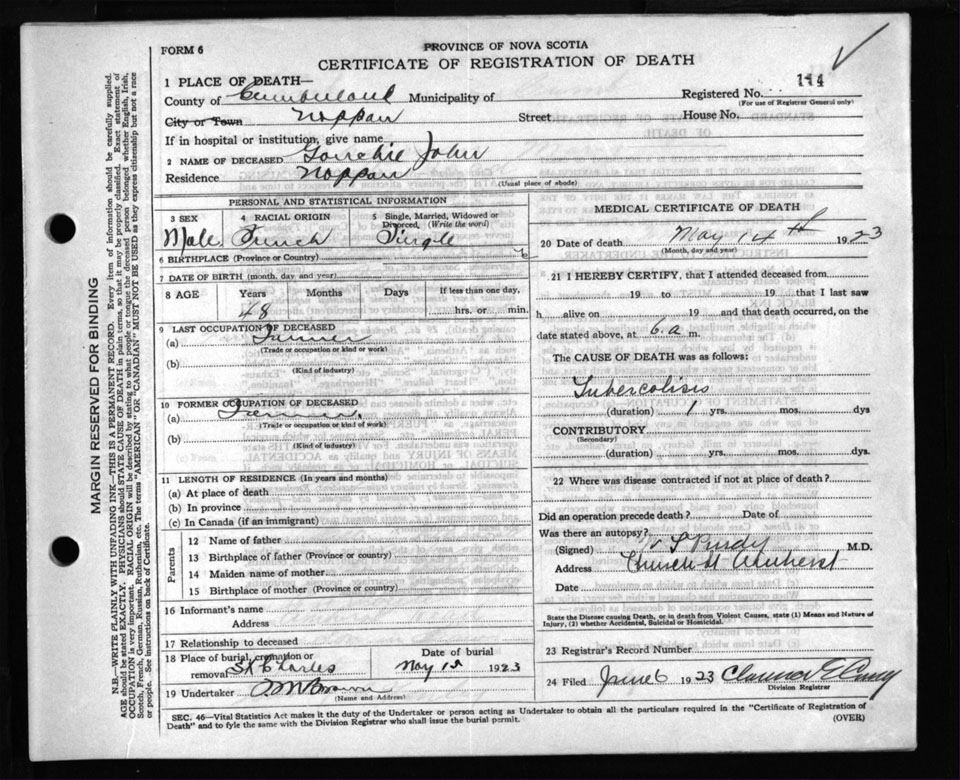 FORM 6
PROVINCE OF NOVA SCOTIA
CERTIFICATE OF REGISTRATION OF DEATH
1 PLACE OF DEATH—
114
County of Cumberland Municipality of
Registered No.
(For use of Registrar General only)
City or Town Nappan Street House No.
If in hospital or institution, give name
2 NAME OF DECEASED John
Residence Nappan
(Usual place of abode)
PERSONAL AND STATISTICAL INFORMATION
3 SEX 4 RACIAL ORIGIN 5 Single, Married, Widowed or Divorced, (Write the word)
Male French Single
6 BIRTHPLACE (Province or Country)
7 DATE OF BIRTH (month, day and year)
8 AGE Years Months Days If less than one day,
48 hrs. or min.
9 LAST OCCUPATION OF DECEASED
(a) Farmer
(Trade or occupation or kind or work)
(b)
(Kind of industry)
10 FORMER OCUPATION OF DECEASED
(a) Farmer.
(Trade or occupation or kind of work)
(b)
(Kind of industry)
11 LENGTH OF RESIDENCE (In years and months)
(a) At place of death
(b) In province
(c) In Canada (if an immigrant)
Parents
12 Name of father
13 Birthplace of father (Province or country)
14 Maiden name of mother
15 Birthplace of mother (Province or country)
16 Informant's name
Address
17 Relationship to deceased
18 Place of burial, cremation or removal St Charles
Date of burial May 15 1923
19 Undertaker
(Name and Address)
MEDICAL CERTIFICATE OF DEATH
20 Date of death May 14th 1923
(Month, day and year)
21 I HEREBY CERTIFY, that I attended deceased from
19 to 19 that I last saw
h alive on 19 and that death occurred, on the
date stated above, at 6.a m.
The CAUSE OF DEATH was as follows:
Tubercolisis
(duration) 1 yrs. mos. dys
CONTRIBUTORY
(Secondary)
(duration) yrs. mos. dys.
22 Where was disease contracted if not at place of death?
Did an operation precede death? Date of
Was there an autopsy?
(Signed) Purdy M.D.
Address Church St Amherst
Date
State the Disease causing Death, or in death from Violent Causes, state (1) Means and Nature of
Injury, (2) whether Accidental, Suicidal or Homicidal.
23 Registrar's Record Number
24 Filed June 6 1923 Clarence
Division Registrar
SEC. 46—Vital Statistics Act makes it the duty of the Undertaker or person acting as Undertaker to obtain all the particulars required in the "Certificate of Registration of
Death" and to fyle the same with the Division Registrar who shall issue the burial permit.
(OVER)
MARGIN RESERVED FOR BINDING
N.B.—WRITE PLAINLY WITH UNFADING INK—THIS IS A PERMANENT RECORD. Every item of information should be carefully supplied.
AGE should be stated EXACTLY. PHYSICIANS should STATE CAUSE OF DEATH in plain terms, so that it may be properly classified. Exact statement of
OCCUPATION is very important. RACIAL ORIGIN will be described by stating to what people or tongue the deceased person belonged whether English, Irish,
Scotch, French, German, Russian, Ruthenian, etc. The terms "AMERICAN" OR "CANADIAN" MUST NOT BE USED as they express citizenship but not a race
or people. See instructions on back of Certificate.